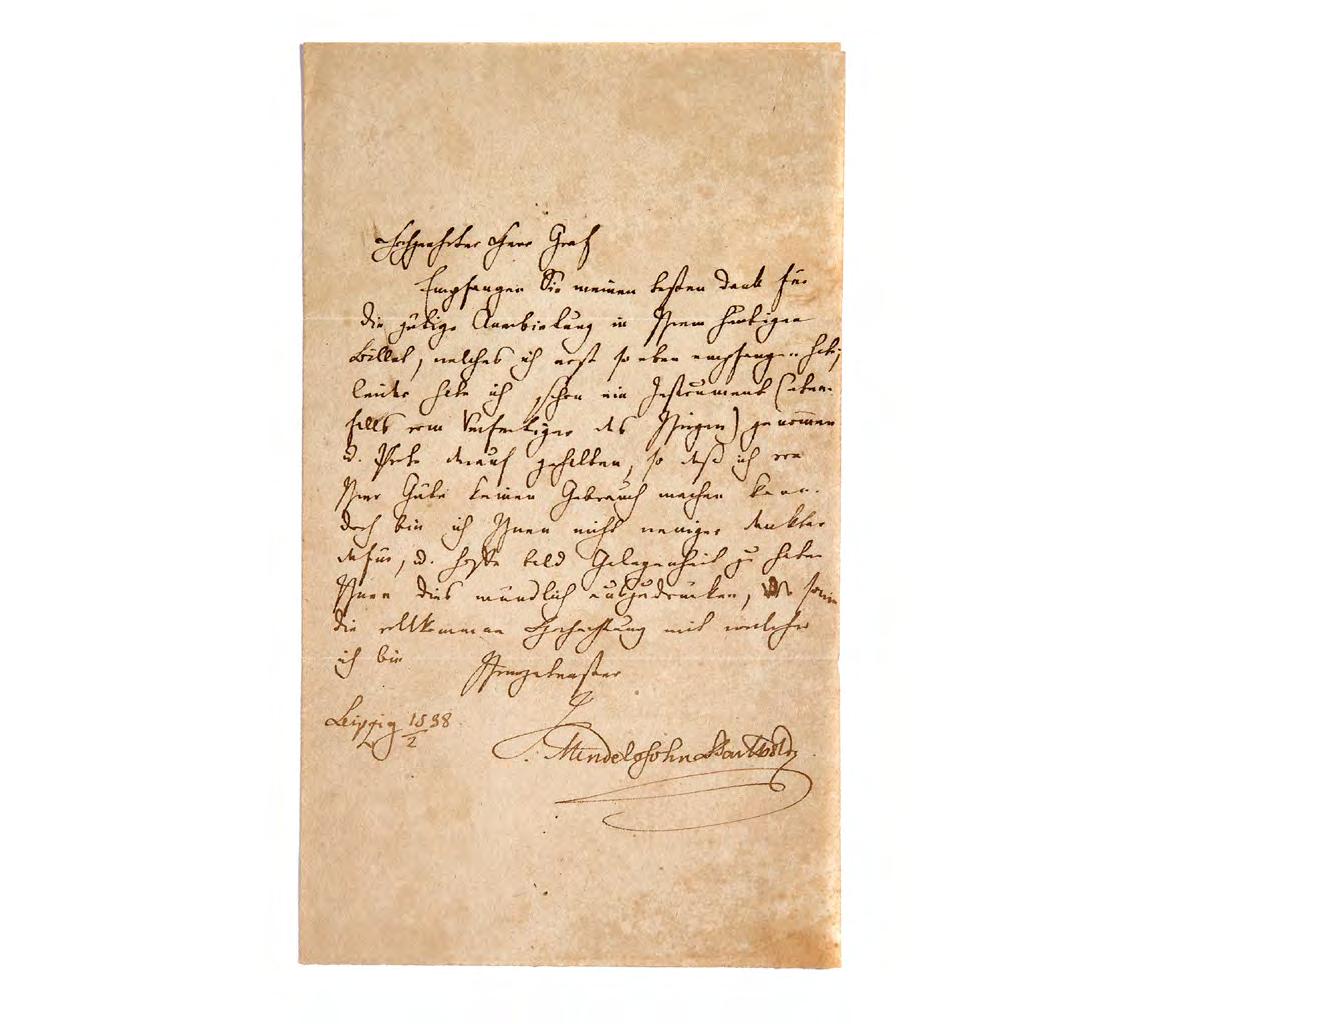 Hochgeehrter Herr Graf
Empfangen Sie meinen besten Dank für
die gütige Anerbietung in Ihrem heutigen
Billet, welches ich erst so eben empfangen habe;
leider habe ich schon ein Instrument (eben-
falls vom Verfertiger des Ihrigen) genommen
u. darauf gehalten, so daß ich von
Ihrer Güte keinen Gebrauch machen kann.
doch bin ich Ihnen nicht weniger dankbar
dafür, u. hoffe bald Gelegenheit zu haben
Ihnen dies mündlich auszudrücken, sowie
die vollkommene Hochachtung mit welcher
ich bin Ihr ergebenster
Leipzig 18/2 38
F. Mendelssohn Bartholdy